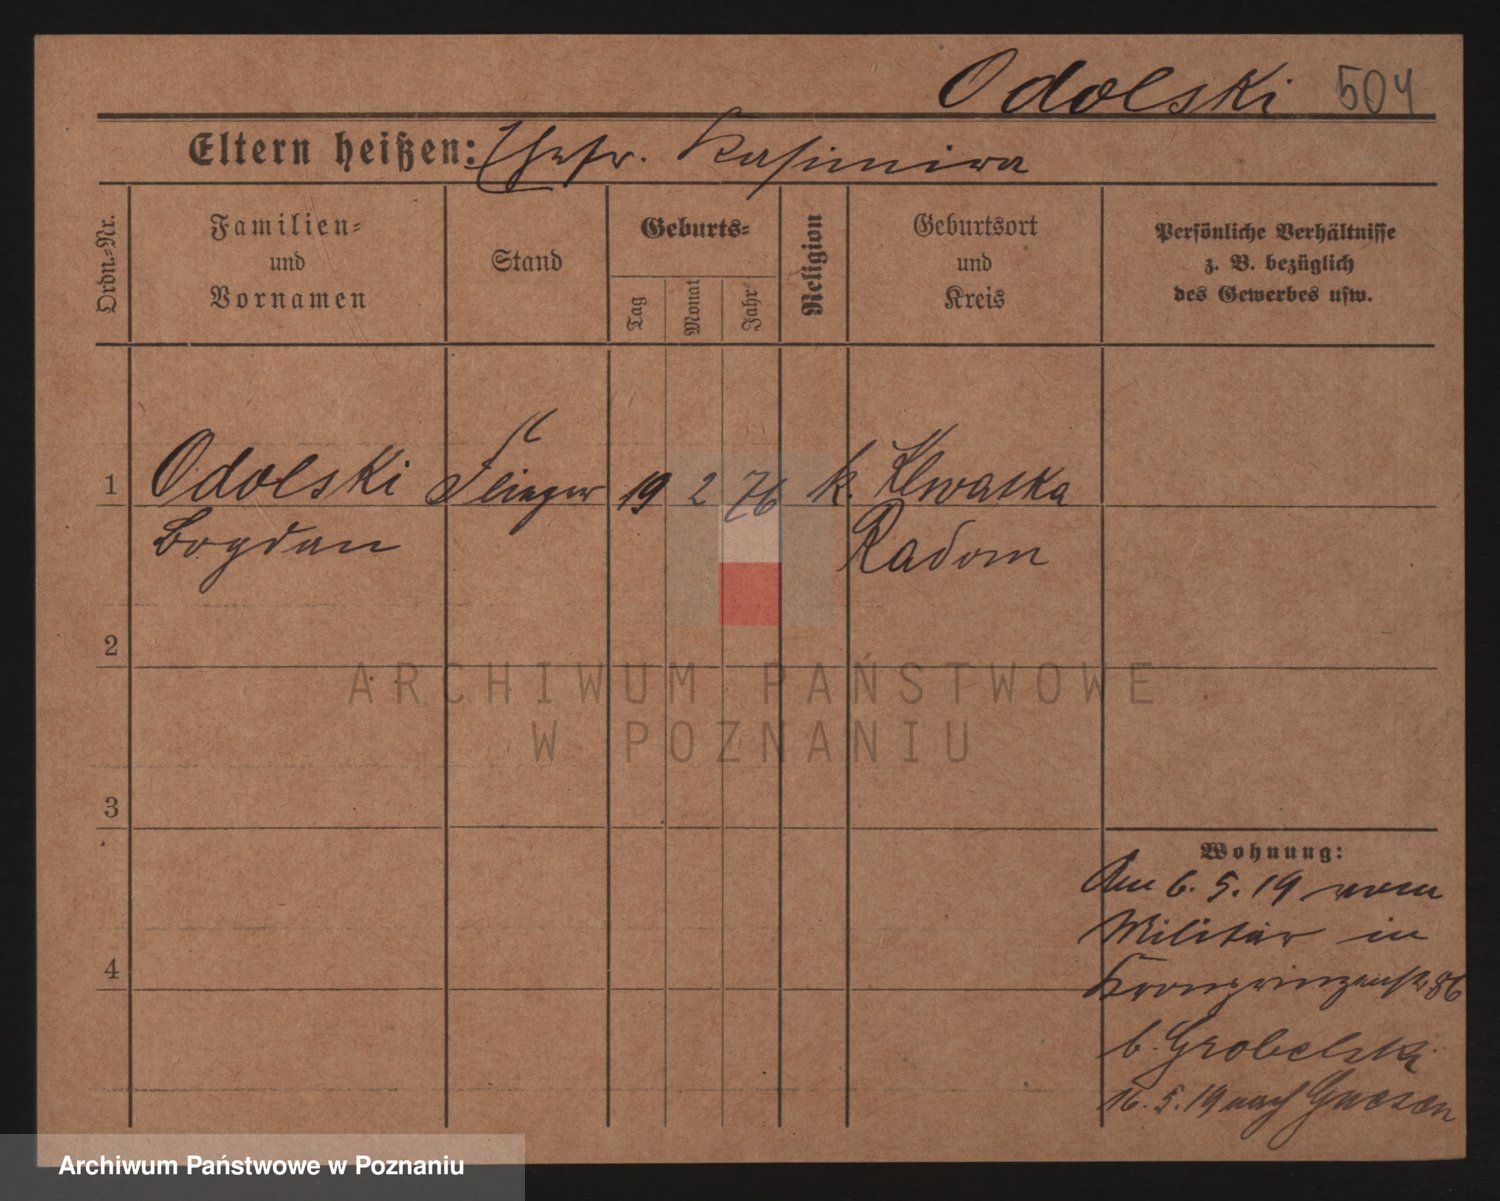 Odolski 504
Eltern heißen: Ehefr. Kasimira
Ordn.-Nr.
Familien-
und
Vornamen
Stand
Geburts-
Tag
Monat
Jahr
Religion
Geburtsort
und
Kreis
Persönliche Verhältnisse
z. B. bezüglich
des Gewerbes usw.
1 Odolski 19 2 76 k. Klwatka
Bogdan Radom
2
3
4
Wohnung:
Am 6. 5. 19 vom
Militär in
Kronprinzenstr 86
b. Grobelski
16. 5. 19 nach Gnesen
ARCHIWUM PAŃSTWOWE
W POZNANIU
Archiwum Państwowe w Poznaniu